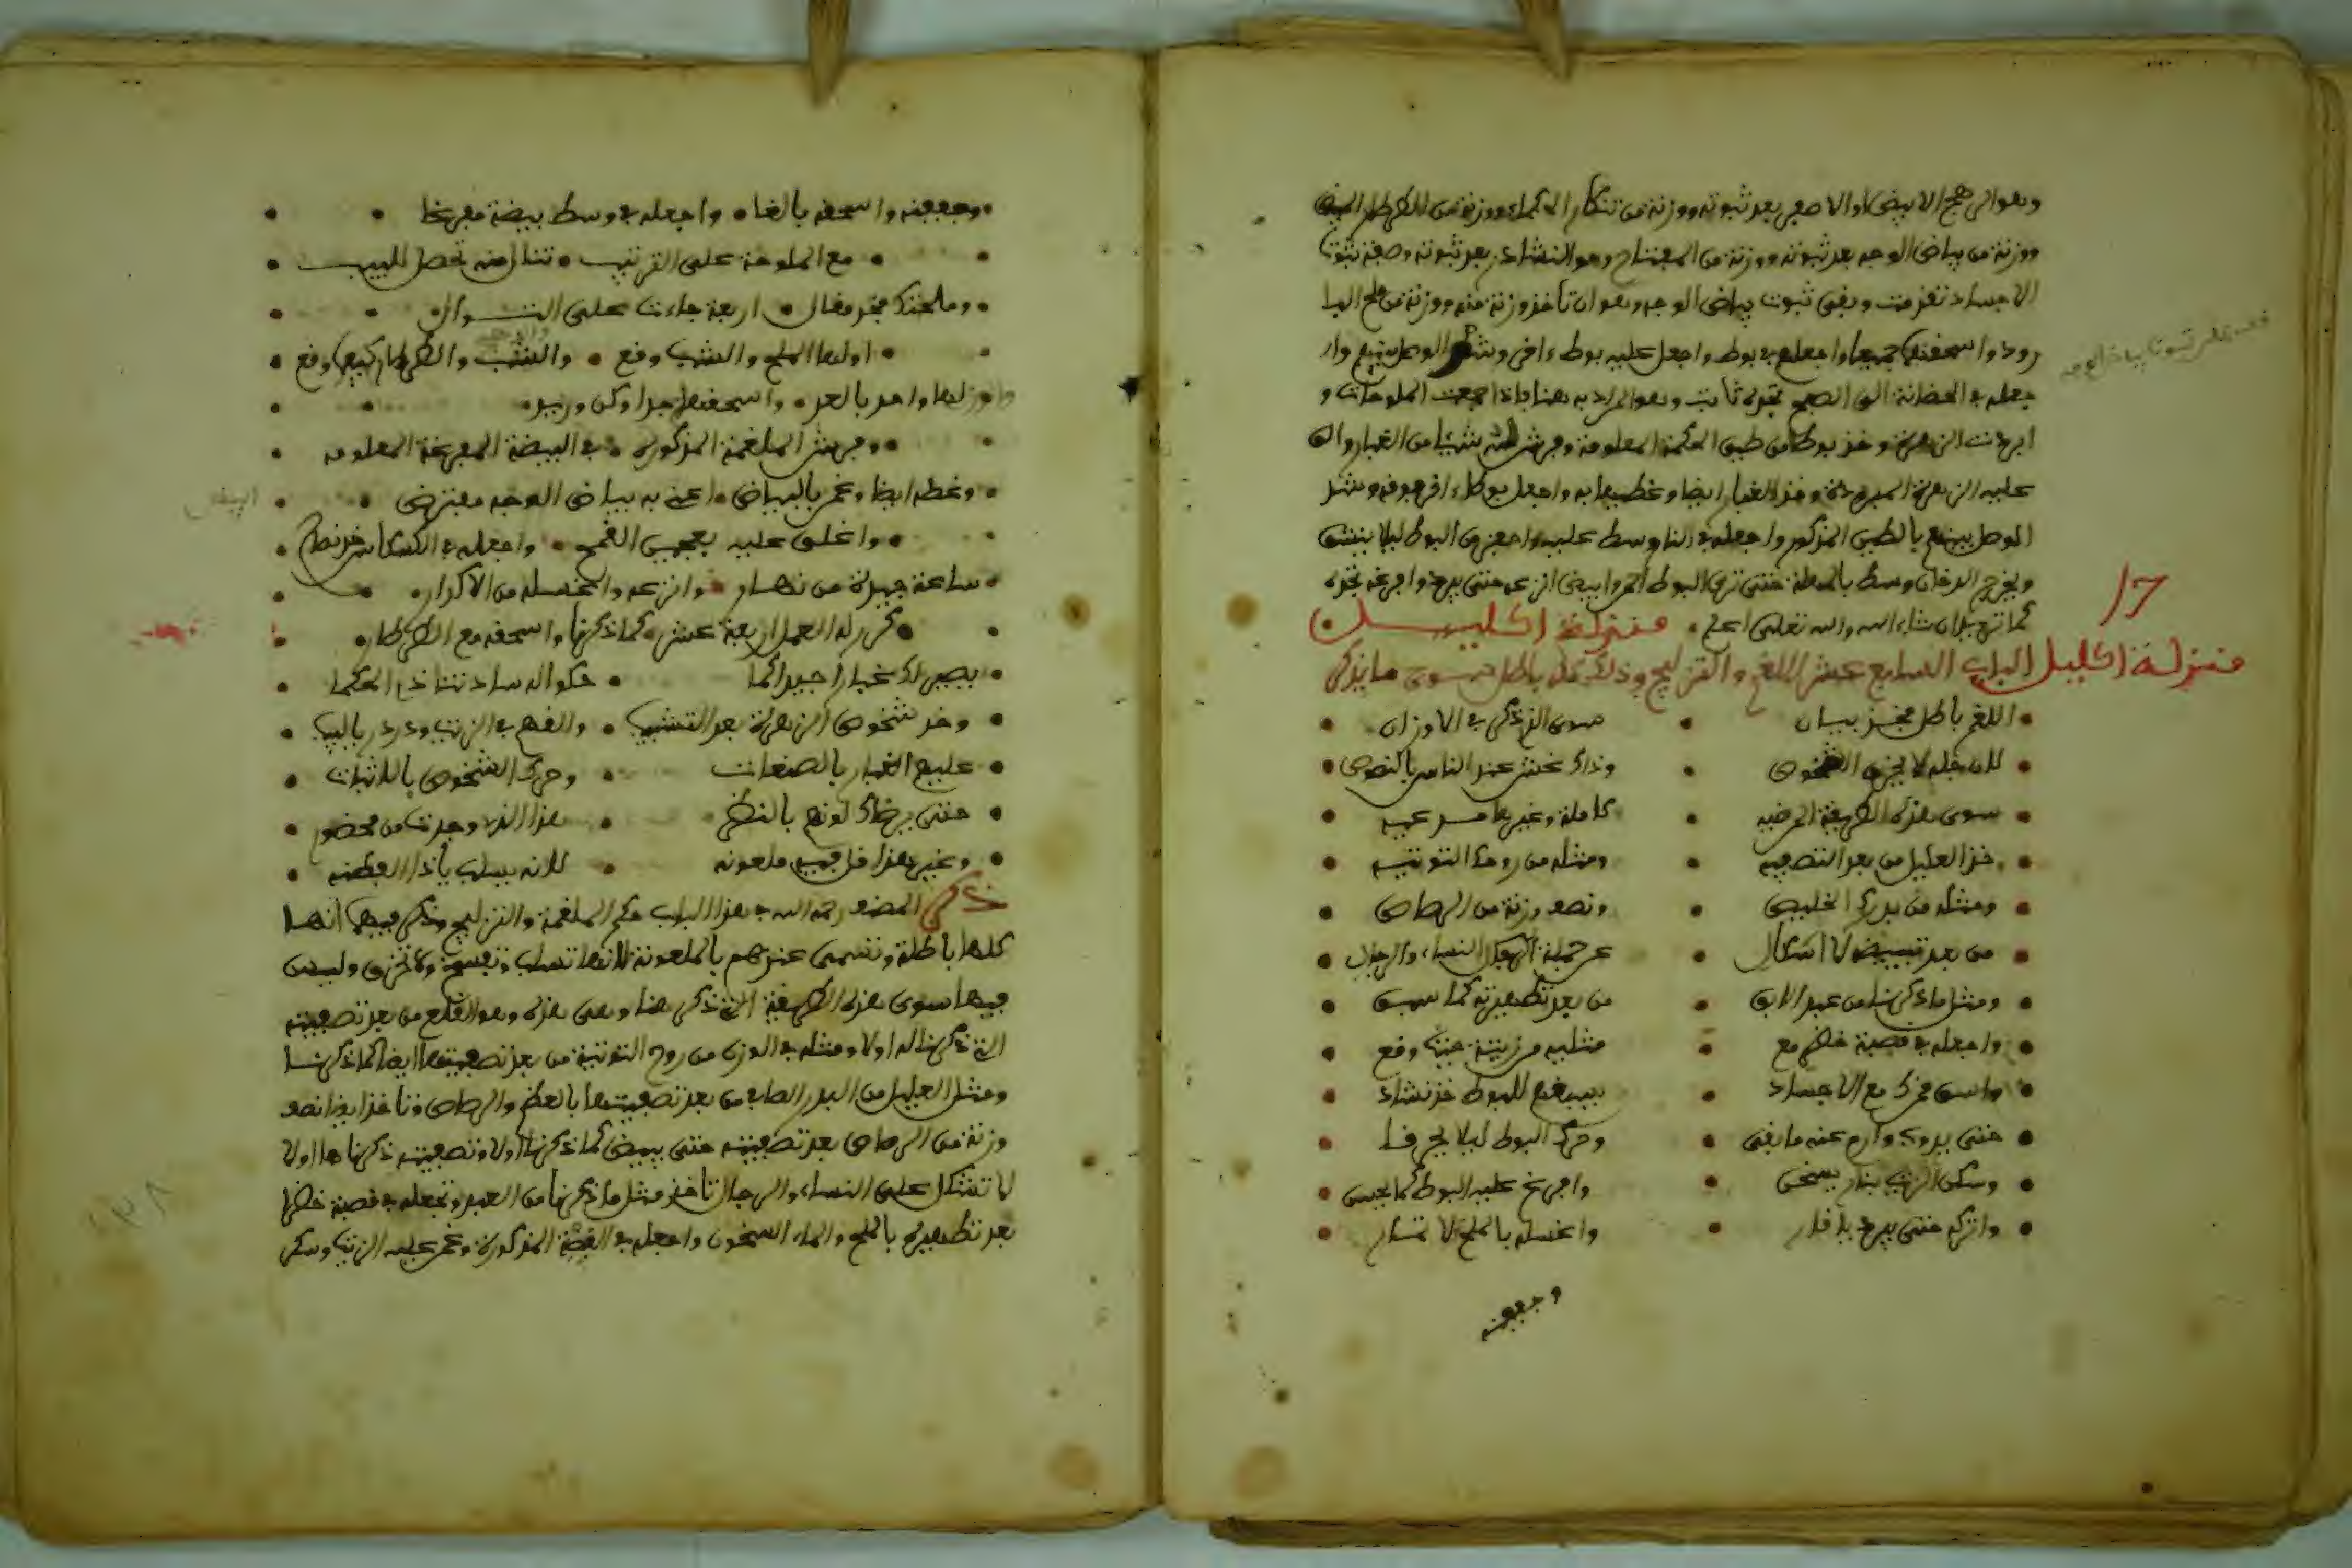 وهو الرهج الابيض او الاصفر بعد ثبوته ووزنة من تنكار الحكماء ووزنة من الطرطار البيض
ووزنة من بياض الوجه بعد ثبوته ووزنة من المفتاح وهو النشاذر بعد ثبوته وصفة ثبوت
الاجساد تقدمت وبقى ثبوت بياض الوجه وهو ان تأخذ وزنة منه ووزنة من ملح البا
رود واسحقهم جميعا واجعلهم في بوط واجعل عليه بوط ءاخر وشد الوصل بينهم وار
جعله في الحضانة الى الصبح تجده ثابت وهو المراد به هنا فاذا جمعت الملوحات و
ابردت الزهرة وخذ بوطا من طين الحكمة المعلومة وفرش له شيئا من الغبار والق
عليه الزهرة المبرودة وخذ الغبار ايضا وغطيها به واجعل بوطاء اخر فوقه وشد
الوصل بينهم بالطين المذكور واجعله في النار وسط عليه واحفز من البوط ليلا ينشق
ويخرج الدخان وسط بالمطة حتى ترى البوط احمر وابيض انزعه حتى يبرد وافرغه تجده
كما تريد ان شاء الله والله تعلى اعلم منزلة اكليل
17
منزلة اكليل الباب السابع عشر اللغم والتزليج وذلك كله باطل سوى ما يذكر
اللغم باطل فخذ بيان سوى الذي ذكر في الاوزان
لان جله لا يجزى الشخوص وذاك غش عند الناس بالنصوص
سوى هذه الطريقة المرضيه كاملة وغيرها مسرعيه
خذ العليل من بعد التصفيه ومثله من روحك التوتيه
ومثله من بدرك الخليص ونصف وزنة من الرصاص
من بعد تبييض لا اشكال عن جملة النساء والرجال
ومثل ما ذكرنا من عبد الابق من بعد تطهيره كما سبق
واجعله في قصبة مثليه من زيت حيث وقع
واسق مخزك مع الاجساد بيبيغم للبوط خذ نشاد
حتى يروى وارم عنه ما بقى وحرك البوط ليلا يحرقا
وسكن الزيت بنار يسخن وافرغ عليه البوط كما يحسن
واتركه حتى يبرد يا قار واغسله بالملح لا تمار
وجففه
وجففه واسحقه بالغا واجعله في وسط بيضة مفرغا
مع الملوحة على الترتيب تنال منه تحصل للبيب
وملحتك فخذ مقال اربعة جاءت على التوال
اولها الملح والشب وقع والشب والطرطار كيفها وقع
واوزانها واحد بالعد واسحقنها جدا وكن وريد
وفرش الملغمة المذكوره في البيضة المفرغة المعلومه
وغطه ايضا وغمر بالبياض اعنى به بياض الوجه مفترض
واغلق عليه بعجين القمح واجعله في الكسكاس خذ نصح
ساعة جيدة من نهار وانزعه واغسله من الاكدار
كرر له العمل اربعة عشر كما ذكرنا واسحقه مع الطرطار
يصير لك غبارا جيدا كما حكوا السادتنا ذا الحكما
وخذ شخوص الزهرة بعد التشبيب والقهم في الزيت ودردر باليب
عليهم الغبار بالصنعات وحرك الشخوص بالاثبات
حتى يرضاك لونهم بالنظر هذا الذي وجدت من محضور
وغير هذا قل فيه ملعونه لانه يسلب يا ذا الفطنه
ذكر المصنف رحمه الله في هذا الباب حكم الملغمة والتزليج وذكر فيهما انها
كلها باطلة وتسمى عندهم بالملعونة لانها تسلب وتفسخ ولا تجزى وليس
فيها سوى هذه الطريقة التي ذكر هنا وهى هذه وهو القلع من بعد تصفيته
التي ذكرنا له اولا ومثله في الوزن من روح التوتية من بعد تصفيتها ايضا كما ذكرنا
ومثل العليل من البدر الصافي من بعد تصفيتها بالعظم والرصاص وتأخذ ايضا نصف
وزنة من الرصاص بعد تصفيته حتى يبيض كما ذكرنا اولا وتصفيته ذكرناها اولا
لا تشكل على النساء والرجال تأخذ مثل ما ذكرنا من العبد وتجعله في قصبة خظرا
بعد تطهيره بالملح والماء السخون واجعله في القصبة المذكورة وغمر عليه الزيت وسكن